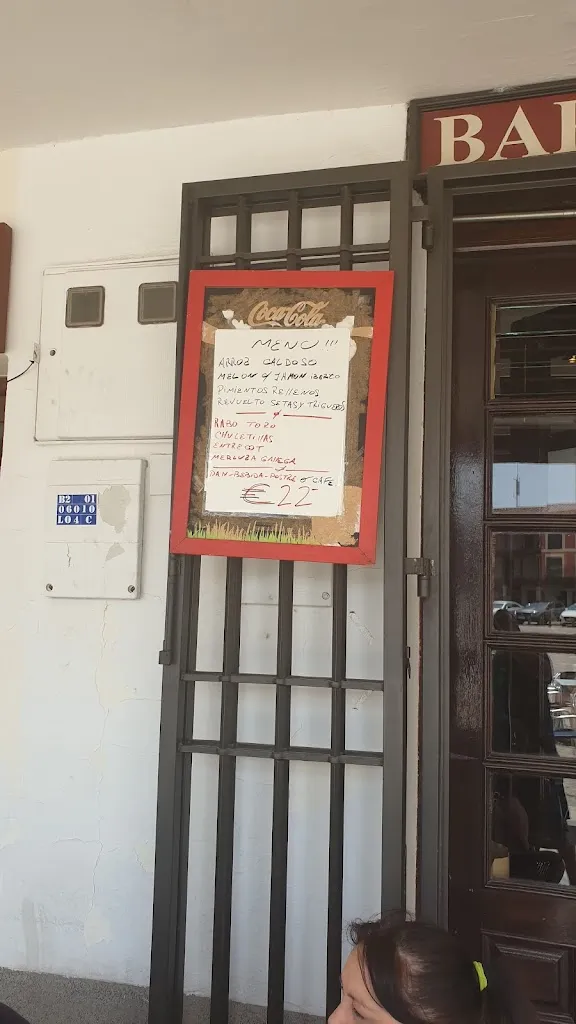 BAR
Coca-Cola
MENU !!!
ARROZ CALDOSO
MELON c/ JAMON IBERICO
PIMIENTOS RELLENOS
REVUELTO SETAS Y TRIGUEROS
RABO TORO
CHULETILLAS
ENTRECOT
MERLUZA GALLEGA
PAN-BEBIDA-POSTRE o CAFE
€22
B2 01
06010
L04 C